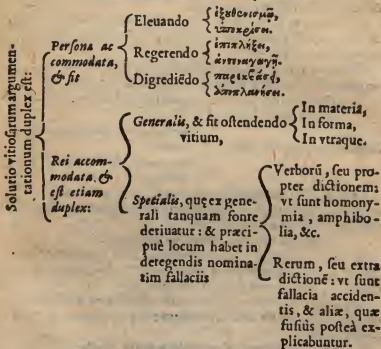 Solutio vitiosarum argumen-
tationum duplex est:
Persona ac
commodata,
& fit
Eleuando
ἐξυθενισμῷ,
ὑποκρίσει.
Regerendo
ἐπιπλήξει,
ἀνταναγωγῇ.
Digrediēdo
παρεκβάσει,
ἀποπλανήσει.
Rei accom-
modata, &
est etiam
duplex:
Generalis, & fit ostendendo
vitium,
In materia,
In forma,
In vtraque.
Specialis, quę ex gene-
rali tanquam fonte
deriuatur: & præci-
puè locum habet in
deregendis nomina-
tim fallaciis
Verborū, seu pro
pter dictionem:
vt sunt homony-
mia, amphibo-
lia, &c.
Rerum, seu extra
dictionē: vt sunt
fallacia acciden-
tis, & aliæ, quæ
fusiùs posteà ex-
plicabuntur.